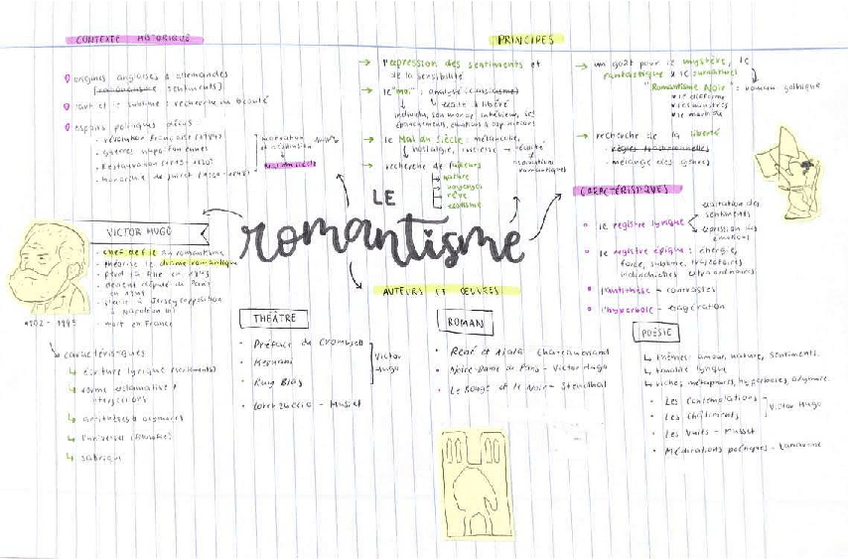 CONTEXTE HISTORIQUE
origines anglaises & allemandes
sentiments]
l'art et le sublime : recherche de beauté
espoirs politiques déçus
- révolution française (1789)
- guerres napoléoniennes
- Restauration
- monarchie de juillet
PRINCIPES
→ l'expression des sentiments et
de la sensibilité
→ le "moi" : analysé
↓ écrit & libéré
individu, son monde intérieur, ses
→ le Mal du Siècle : mélancolie,
nostalgie, tristesse → réalité
→ recherche de
nature
voyages
rêve
exotisme
aspirations
romantiques
→ un goût pour le mystère, le
fantastique & le surnaturel
"Romantisme Noir" : roman gothique
le difforme
les monstres
le macabre
→ recherche de la liberté
règles traditionnelles
- mélange des genres
CARACTÉRISTIQUES
le registre lyrique
exaltation des
sentiments
expression des
émotions
le registre épique : énergie,
force, sublime, trajectoires
individuelles extraordinaires
l'antithèse → contrastes
l'hyperbole → exagération
LE
romantisme
VICTOR HUGO
- chef de file du romantisme
- théorise le drame romantique
- perd sa fille en 1843
- devient député de Paris
en
- exilé à Jersey
Napoléon III
- mort en France
1802 - 1885
caractéristiques
↳ écriture lyrique (sentiments)
↳ forme exclamative &
↳ antithèses & oxymores
↳ l'universel
AUTEURS ET ŒUVRES
THÉÂTRE
• Préface de Cromwell
• Hernani
• Ruy Blas
Victor
Hugo
• Lorenzaccio - Musset
ROMAN
• René et Atala - Chateaubriand
• Notre-Dame de Paris - Victor Hugo
• Le Rouge et le Noir - Stendhal
POÉSIE
↳ thèmes : amour, nature, sentiments
↳ tonalité lyrique
↳ riches métaphores, hyperboles,
• Les Contemplations
• Les Châtiments
Victor Hugo
• Les Nuits - Musset
• Méditations poétiques - Lamartine